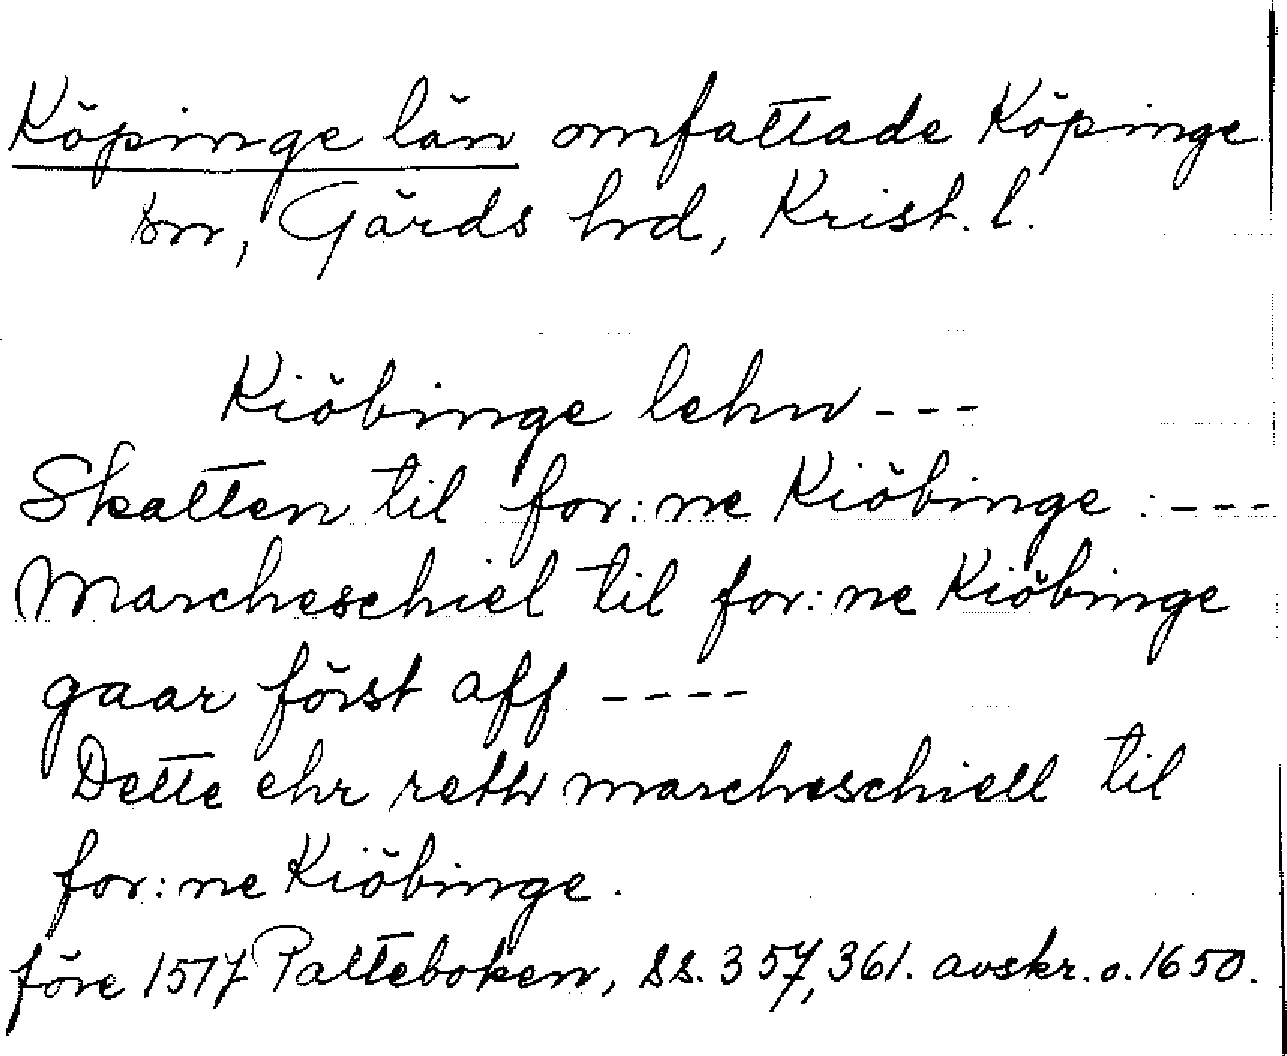 Köpinge län omfattade Köpinge
sn, Gärds hrd, Krist. l.
Kiöbinge lehn ---
Skatten til for:ne Kiöbinge : ---
Marcheschiel til for:ne Kiöbinge
gaar först aff ----
Dette ehr reth marcheschiell til
for:ne Kiöbinge.
före 1517 Palteboken, ss. 357, 361. avskr. o. 1650.